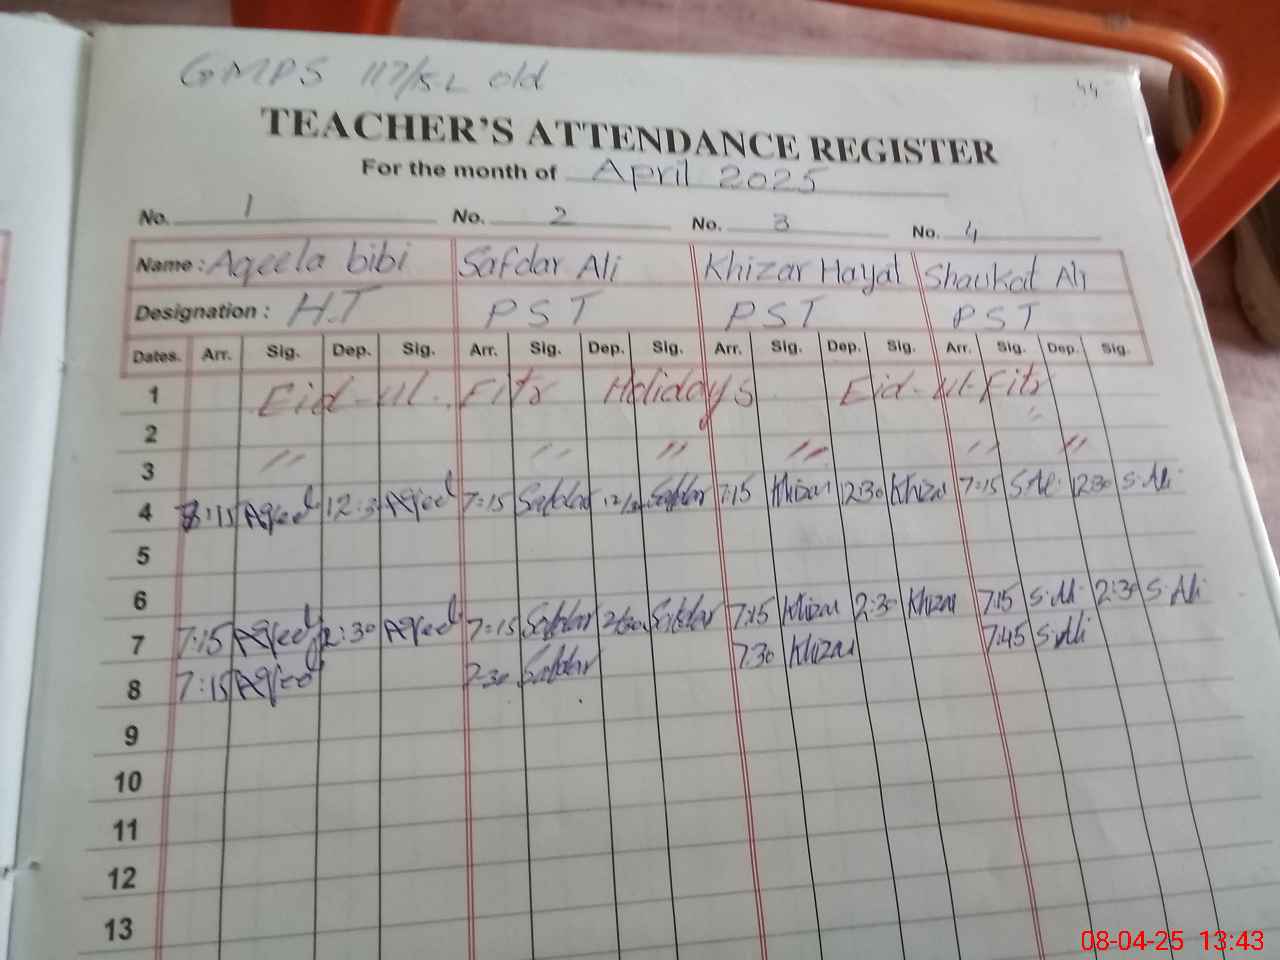 GMPS 117/15-L old
44
TEACHER'S ATTENDANCE REGISTER
For the month of April 2025
No. 1 No. 2 No. 3 No. 4
Name : Aqeela bibi Safdar Ali Khizar Hayat Shaukat Ali
Designation : H.T PST PST PST
Dates. Arr. Sig. Dep. Sig. Arr. Sig. Dep. Sig. Arr. Sig. Dep. Sig. Arr. Sig. Dep. Sig.
1 Eid-ul-Fitr Holidays Eid-ul-Fitr
2 " " " " " "
3
4 12:30 7:15 Safdar Safdar 7:15 Khizar 12:30 Khizar 7:15 S.Ali 12:30 S.Ali
5
6
7 7:15 2:30 7:15 Safdar Safdar 7:15 Khizar 2:30 Khizar 7:15 S.Ali 2:30 S.Ali
8 7:15 7:30 Safdar 7:30 Khizar 7:45 S.Ali
9
10
11
12
13
08-04-25 13:43